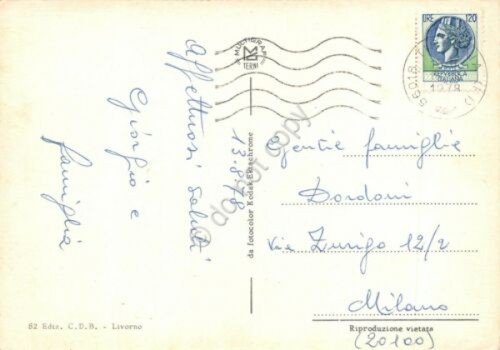 Affettuosi saluti
Giorgio e
famiglia
13.8.78
MULTIGRAF
TERNI
LIRE 120
1978
Gentil famiglia
Dordoni
Via Zurigo 12/2
Milano
(20100)
da fotocolor Kodak Ektachrome
52 Ediz. C.D.B. - Livorno
Riproduzione vietata
do not copy